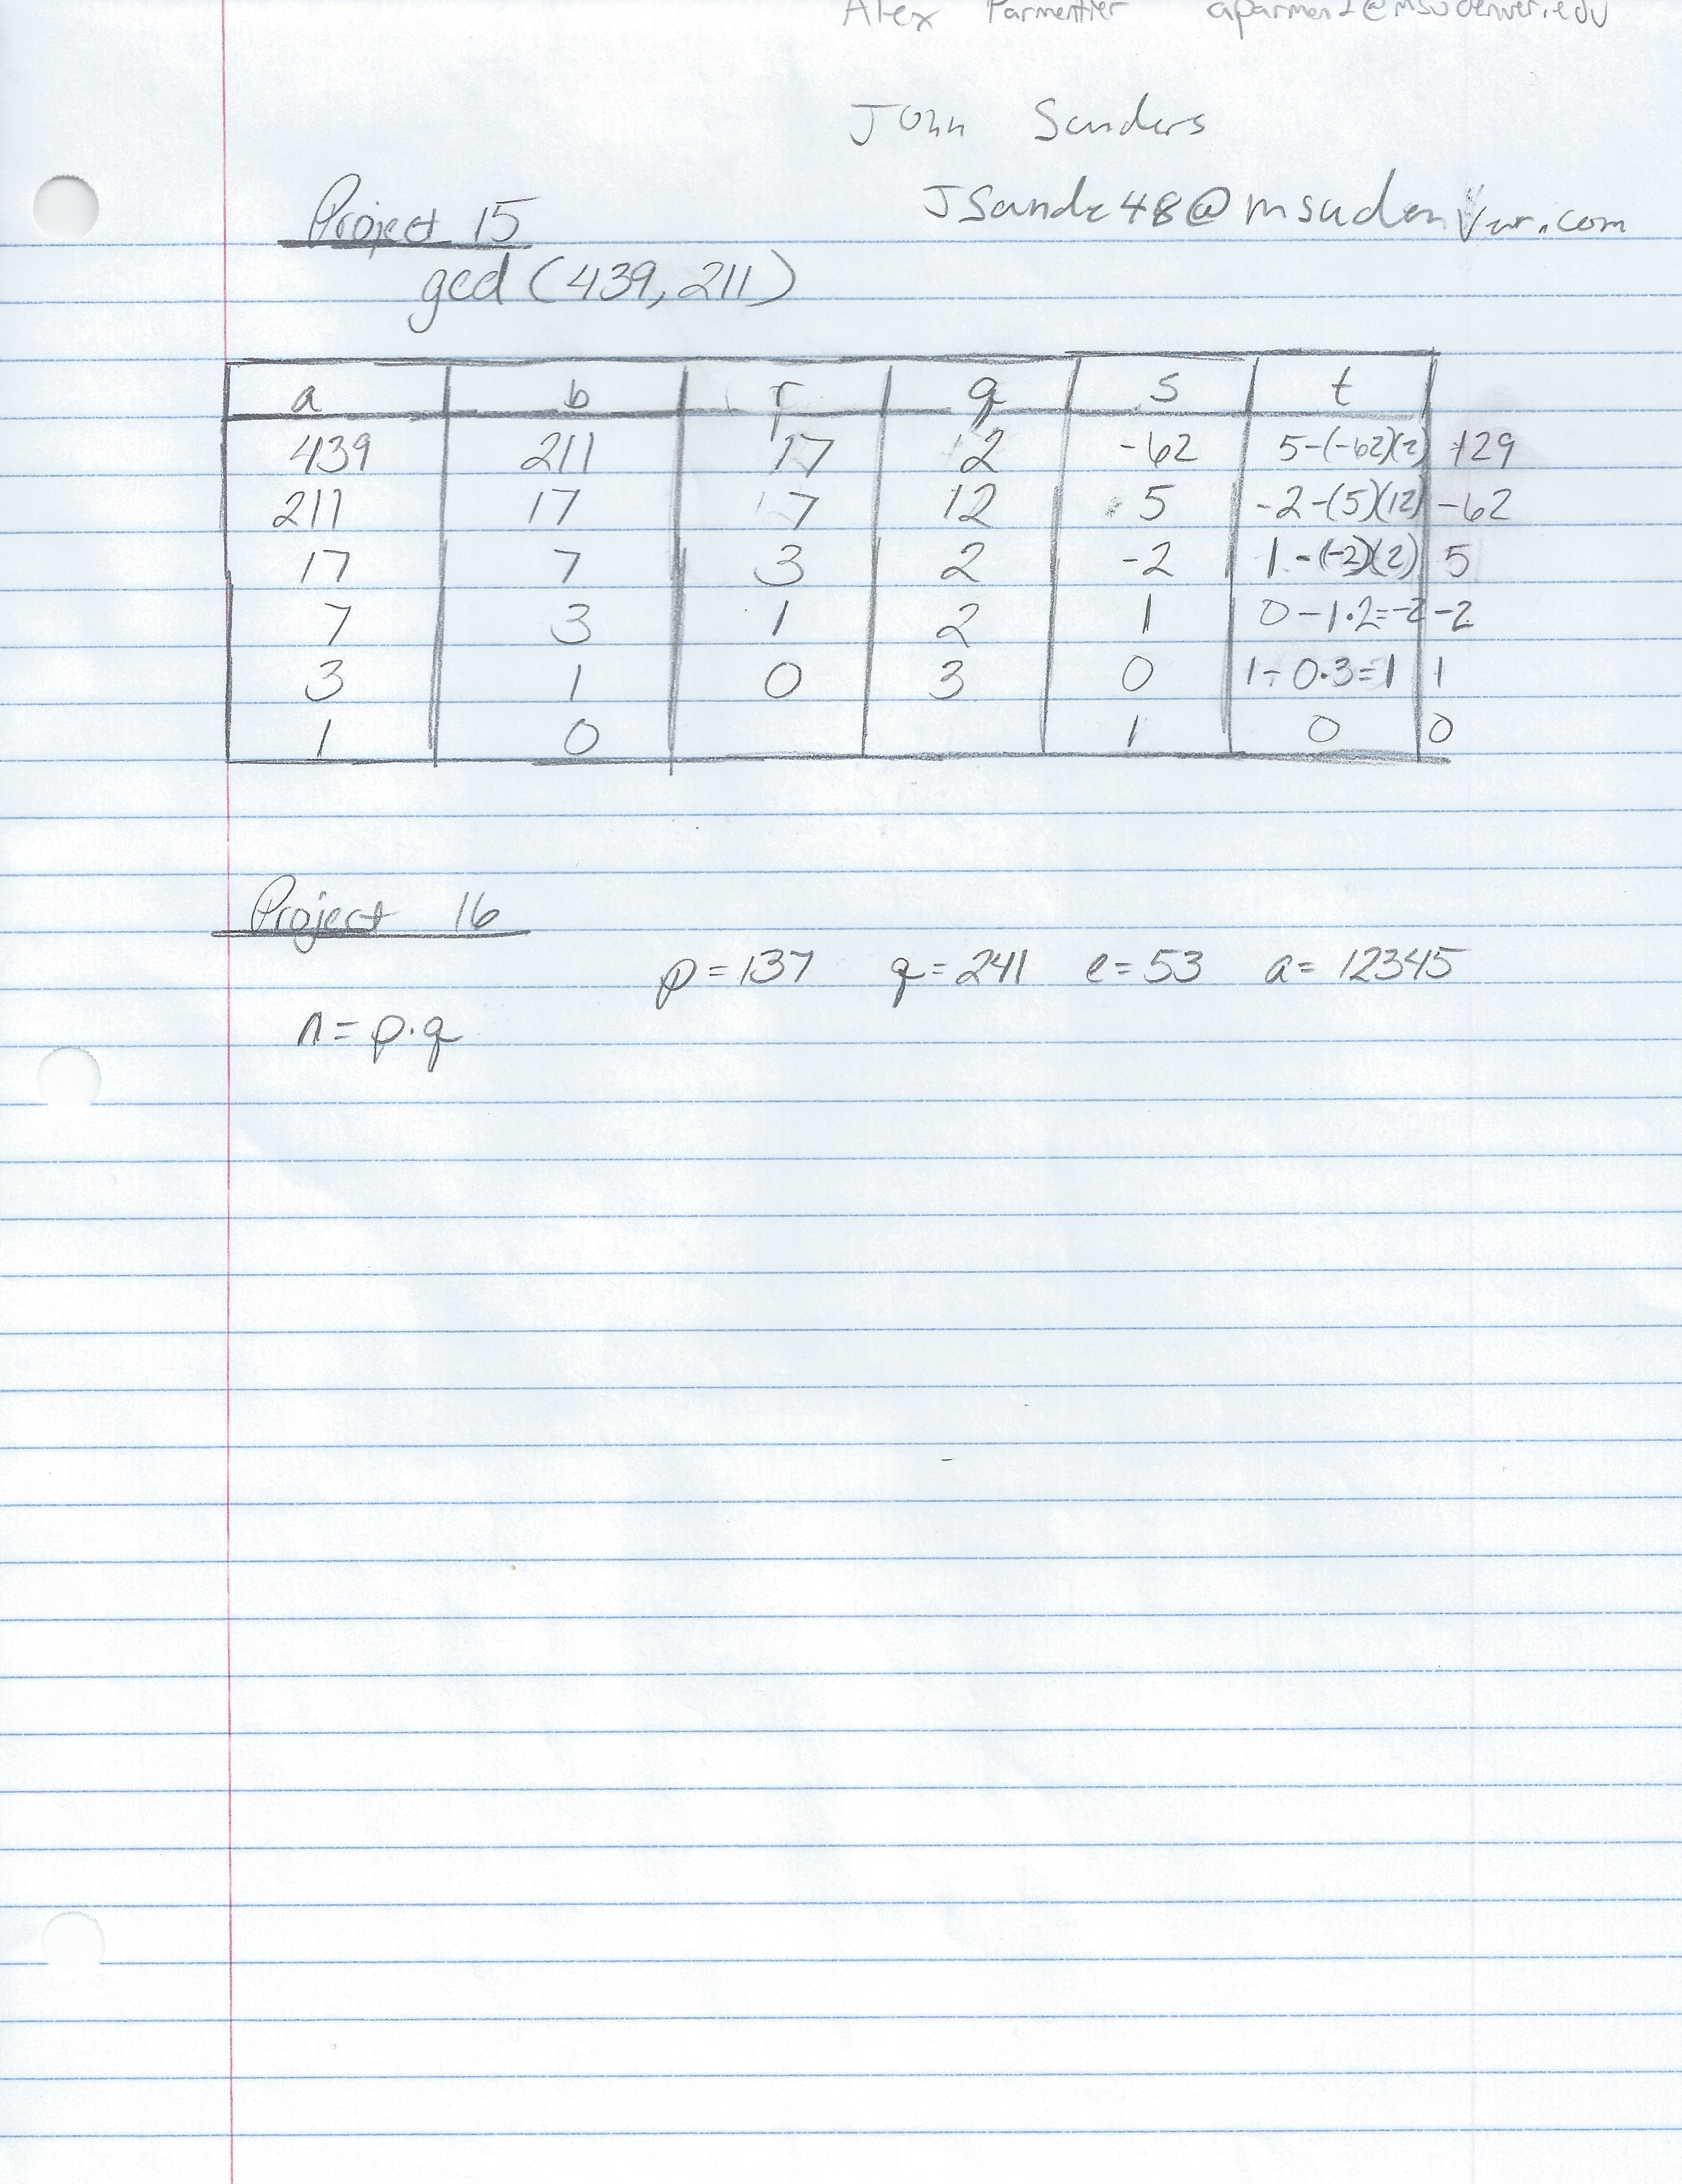 Alex Parmentier aparmen2@msudenver.edu
John Sanders
Project 15 JSande48@msudenver.com
gcd (439, 211)
a b r q s t
439 211 17 2 -62 5-(-62)(2) 129
211 17 7 12 5 -2-(5)(12) -62
17 7 3 2 -2 1-(-2)(2) 5
7 3 1 2 1 0-1·2=-2 -2
3 1 0 3 0 1-0·3=1 1
1 0 1 0 0
Project 16
p=137 q=241 e=53 a=12345
n=p·q